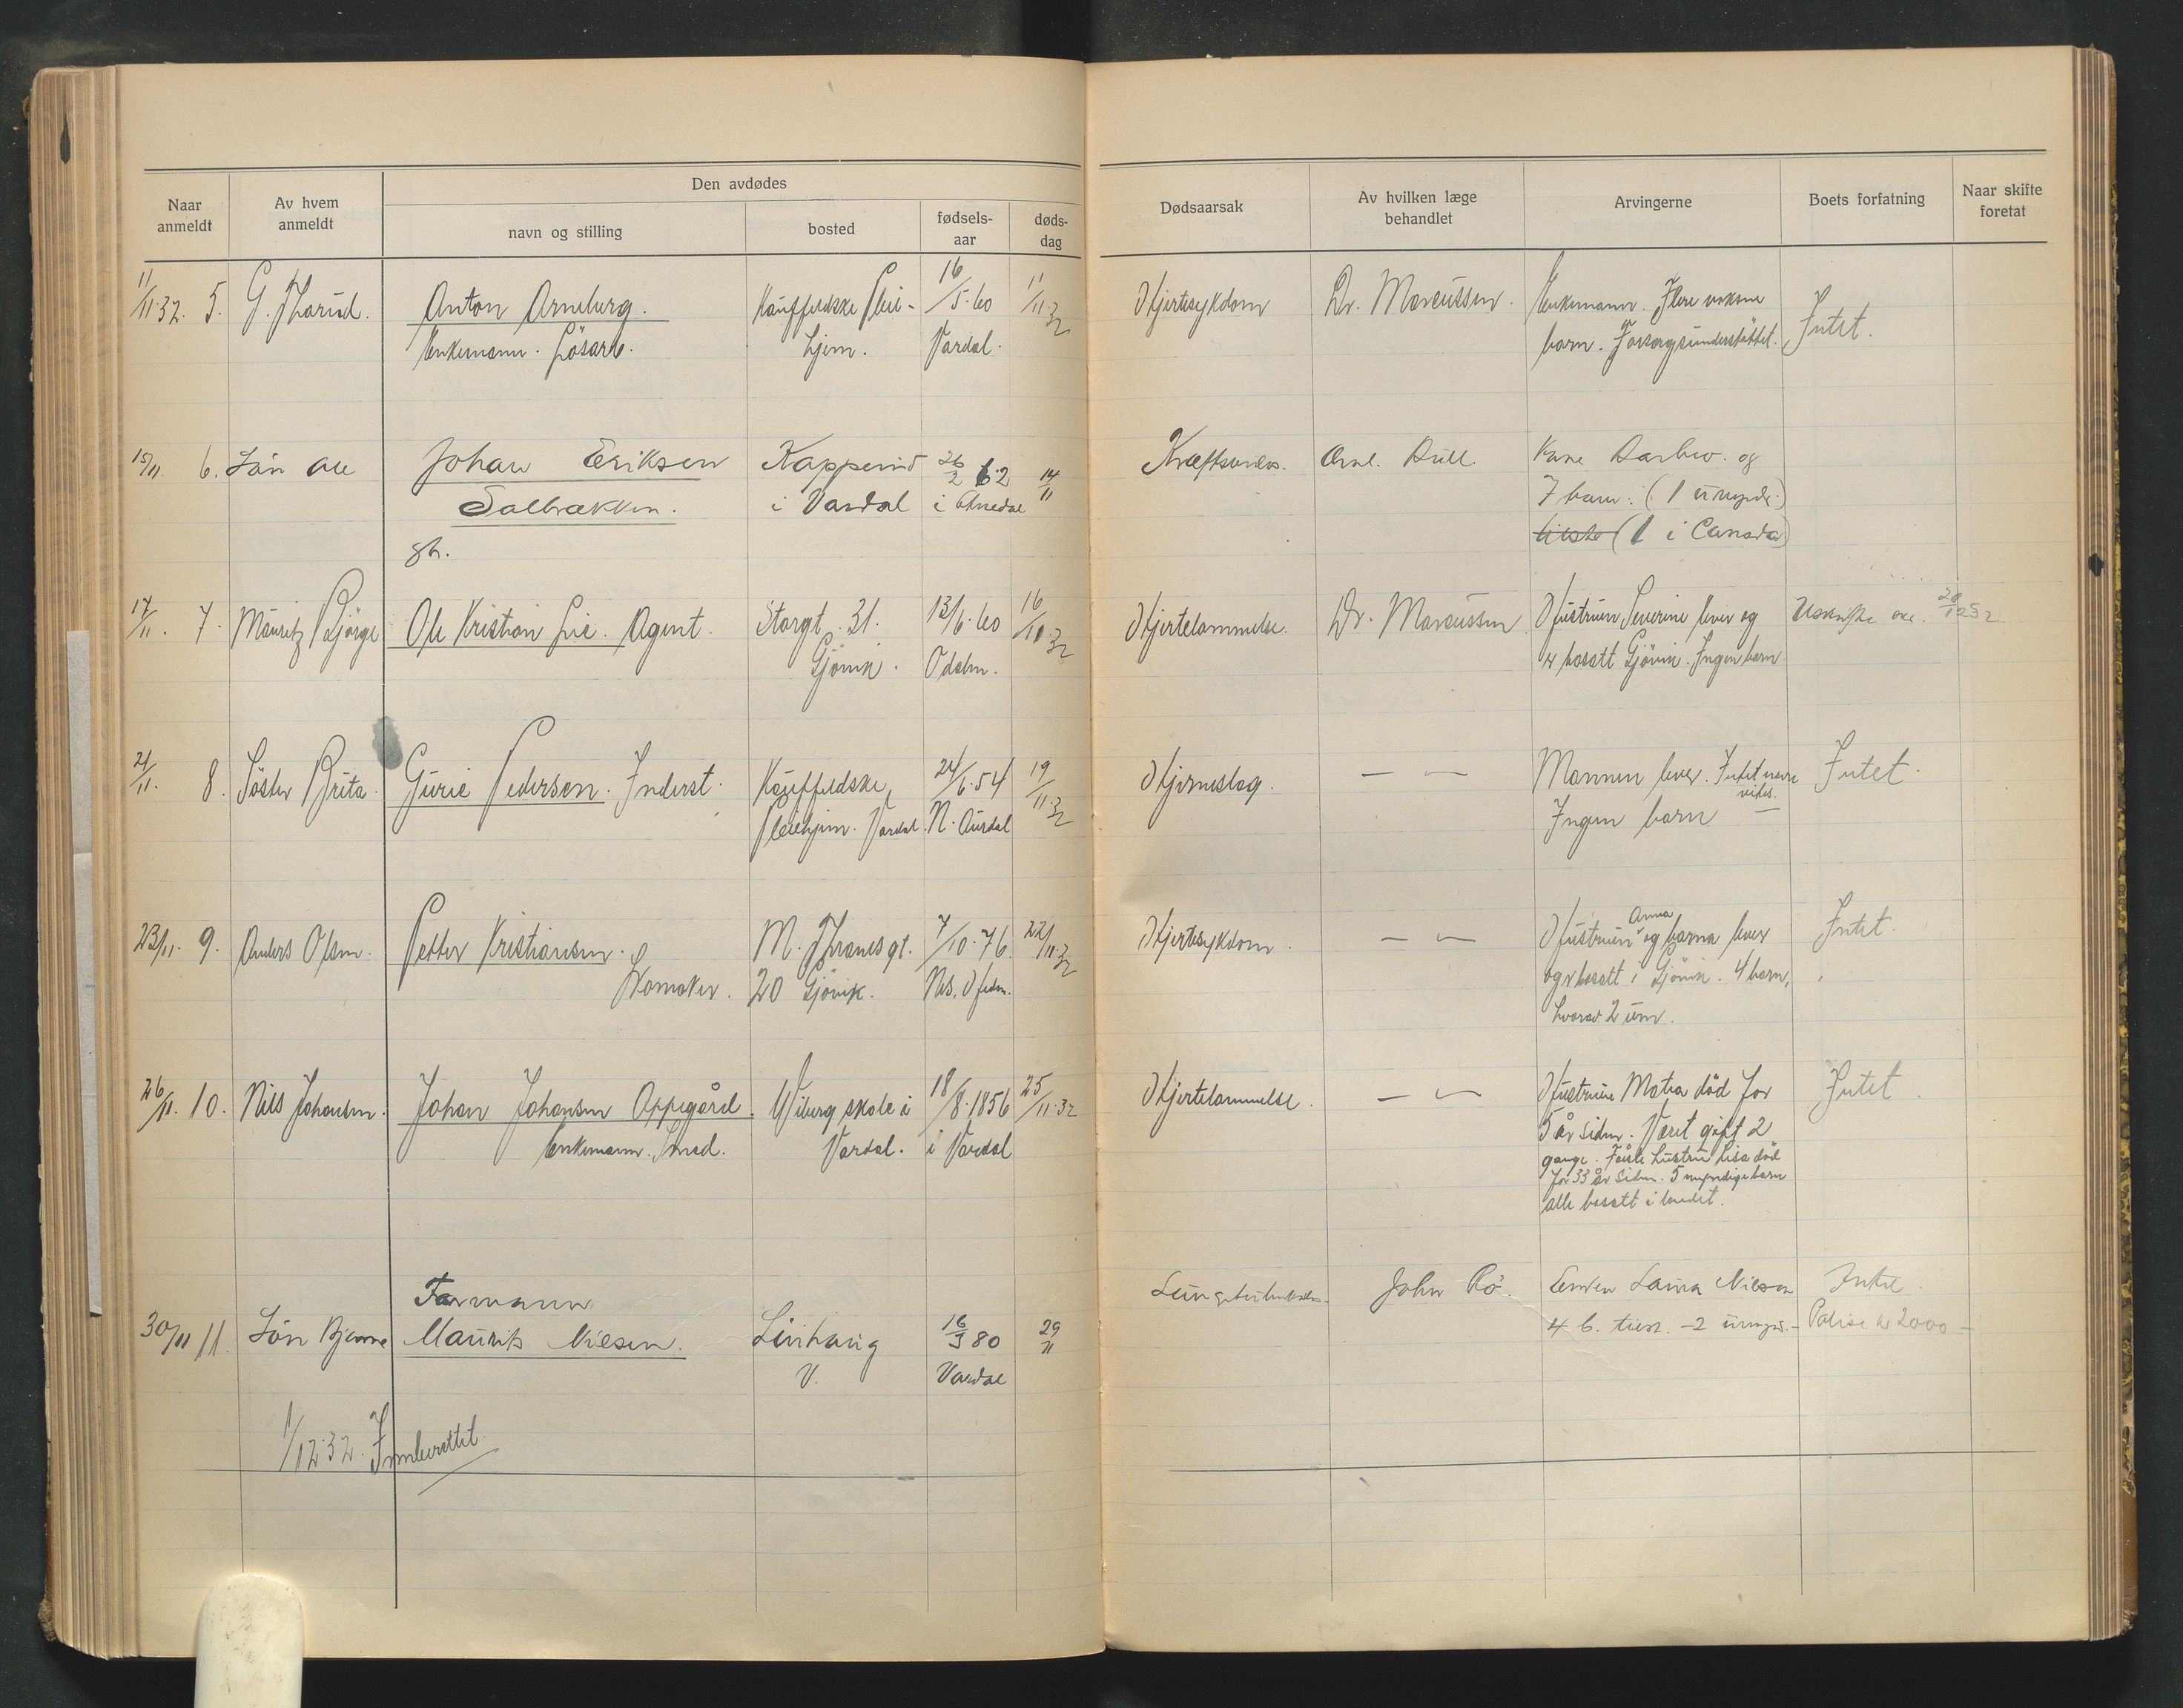 Naar anmeldt
Av hvem anmeldt
Den avdødes
navn og stilling
bosted
fødsels-aar
døds-dag
Dødsaarsak
Av hvilken læge behandlet
Arvingerne
Boets forfatning
Naar skifte foretat
11/11.32. 5. G. Tharud. Anton Arneberg. Kauffeldske Pleie- 16/5.60 11/11.32 Hjertesykdom Dr. Marcussen. Enkemann. Flere voksne
Enkemann. Løsarb. hjem. Vardal. barn. Forsorgsunderstøttet. Intet.
15/11. 6. Sön Ole Johan Eriksen Kapperud 26/2 62 14/11 Kræftsvulst. Kone Barbro. og
Salbrækken. i Vardal i 7 barn. (1 umynd.)
gb. (1 i Canada)
17/11. 7. Mauritz Bjørge Ole Kristian Lie. Agent. Storgt. 31. 13/6.60 16/11.32 Hjertelammelse. Dr. Marcussen Hustruen Severine lever og Uskifte
Gjövik. Odalen. er bosatt Gjövik. Ingen barn.
21/11. 8. Söster Brita. Gurie Pedersen. Inderst. Kauffeldske 24/6.54 19/11.32 Hjerneslag. — 〃 — Mannen lever. Intet mere Intet.
vites.
pleiehjem. Vardal. N. Aurdal Ingen barn —
23/11. 9. Anders Olsen. Petter Kristiansen. M. Thranes gt. 7/10.76. 22/11.32 Hjertesykdom. — 〃 — Hustruen Anna og barna lever Intet.
Skomaker. 20 Gjövik. Nes. Hedm. og er bosatt i Gjövik. 4 barn,
hvorav 2 um.
26/11. 10. Nils Johansen. Johan Johansen Oppegård. Viberg skole i 18/8.1856 25/11.32 Hjertelammelse. — 〃 — Hustruen Matea död for Intet.
Enkemann. Smed. Vardal. i Vardal 5 år siden. Været gift 2
gange. Første hustru Lisa död
for 33 år siden. 5 myndige barn
alle bosatt i landet.
Formann
30/11 11. Sön Bjarne Maurits Nilsen. Linhaug 16/3 80 29/11 Lungetuberkulos. John Rö. Enken Laura Nilsen Intet
V. Vardal 4 b. 2 umynd. — Polise kr 2000 —
1/12.32. Innberettet.